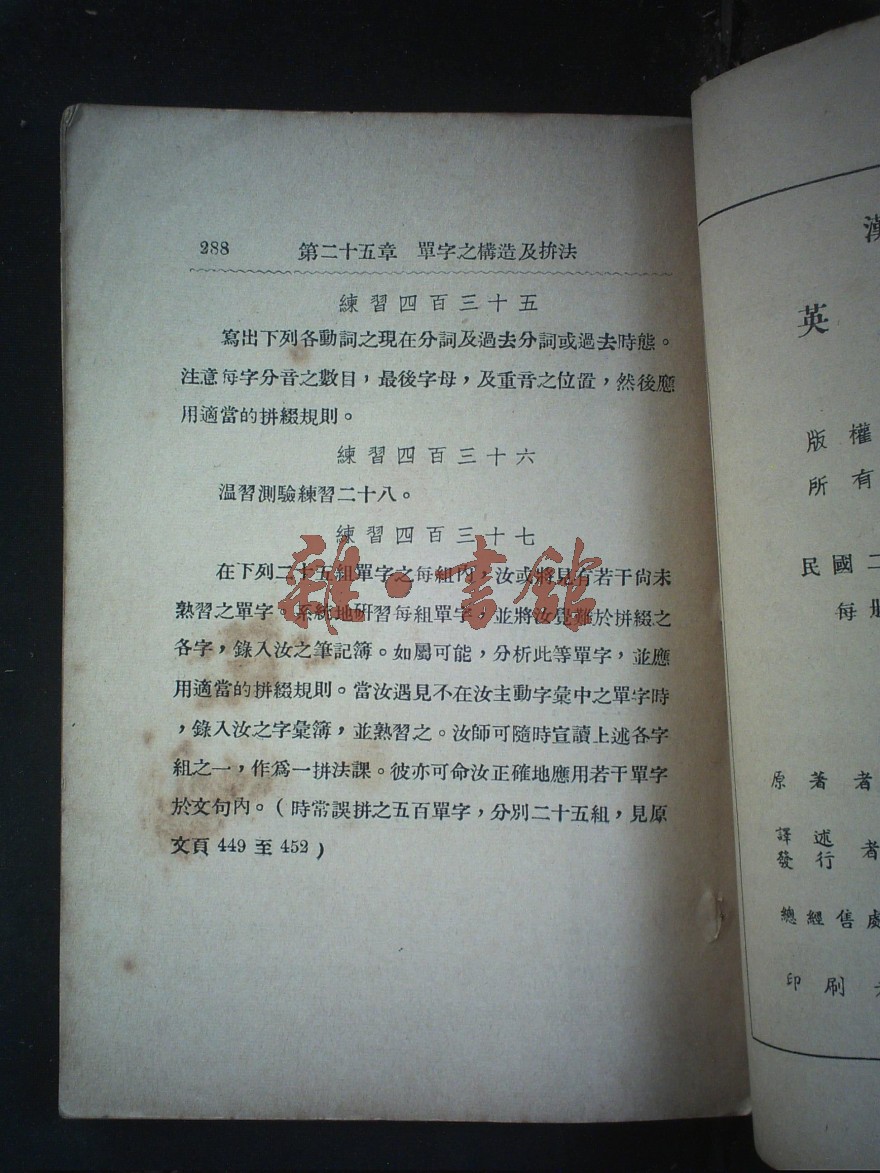 288 第二十五章 單字之構造及拚法
練習四百三十五
寫出下列各動詞之現在分詞及過去分詞或過去時態。
注意每字分音之數目，最後字母，及重音之位置，然後應
用適當的拼綴規則。
練習四百三十六
温習測驗練習二十八。
練習四百三十七
在下列二十五組單字之每組內，汝或將見有若干尙未
熟習之單字。系統地研習每組單字，並將汝覺難於拼綴之
各字，錄入汝之筆記簿。如屬可能，分析此等單字，並應
用適當的拼綴規則。當汝遇見不在汝主動字彙中之單字時
，錄入汝之字彙簿，並熟習之。汝師可隨時宣讀上述各字
組之一，作爲一拼法課。彼亦可命汝正確地應用若干單字
於文句內。（時常誤拼之五百單字，分別二十五組，見原
文頁 449 至 452）
雜·書館
漢
英
版權
所有
民國二
每
原著者
譯述
發行者
總經售處
印刷